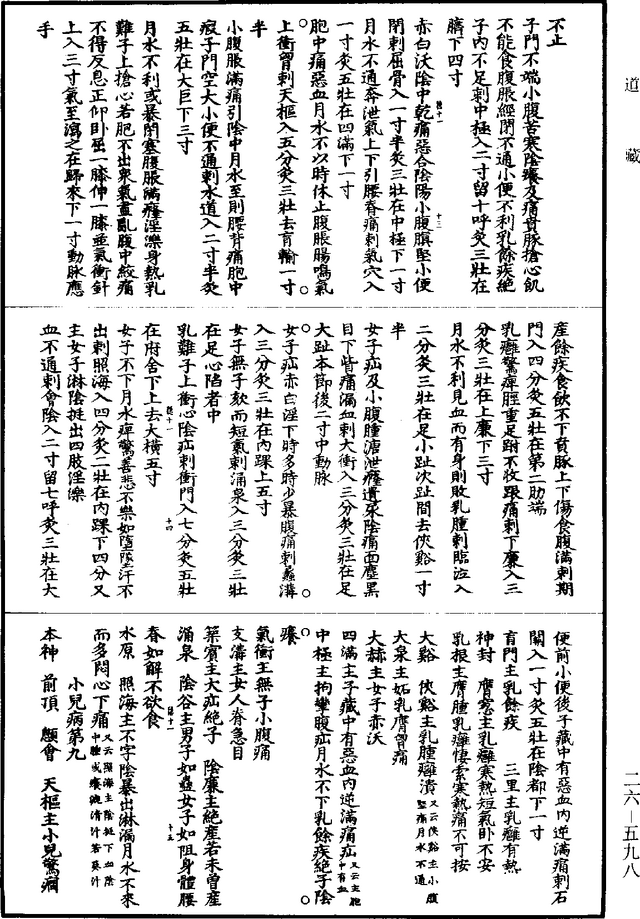 道藏
不止
子門不端小腹苦寒陰癢及痛賁豚搶心飢
不能食腹脹經閉不通小便不利乳餘疾絕
子內不足刺中極入二寸留十呼灸三壯在
臍下四寸
赤白沃陰中乾痛惡合陰陽小腹䐜堅小便
閉刺屈骨入一寸半灸三壯在中極下一寸
月水不通奔泄氣上下引腰脊痛刺氣穴入
一寸灸五壯在四滿下一寸
胞中痛惡血月水不以時休止腹脹腸鳴氣
上衝胷刺天樞入五分灸三壯去肓輸一寸
半
小腹脹滿痛引陰中月水至則腰背痛胞中
瘕子門空大小便不通刺水道入二寸半灸
五壯在大巨下三寸
月水不利或暴閉塞腹脹滿癃淫濼身熱乳
難子上搶心若胞不出眾氣盡亂腹中絞痛
不得反息正仰臥屈一膝伸一膝並氣衝針
上入三寸氣至瀉之在歸來下一寸動脈應
手
產餘疾食飲不下賁豚上下傷食腹滿刺期
門入四分灸五壯在第二肋端
乳癰驚痺脛重足跗不收跟痛刺下廉入三
分灸三壯在上廉下三寸
月水不利見血而有身則敗乳腫刺臨泣入
二分灸三壯在足小趾次趾間去俠谿一寸
半
女子疝及小腹腫溏泄癃遺尿陰痛面塵黑
目下眥痛漏血刺大衝入三分灸三壯在足
大趾本節後二寸中動脈
女子疝赤白淫下時多時少暴腹痛刺蠡溝
入三分灸三壯在內踝上五寸
女子無子欬而短氣刺涌泉入三分灸三壯
在足心陷者中
乳難子上衝心陰疝刺衝門入七分灸五壯
在府舍下上去大橫五寸
女子不下月水痺驚善悲不樂如墮墜汗不
出刺照海入四分灸二壯在內踝下四分又
主女子淋陰挺出四肢淫濼
血不通刺會陰入二寸留七呼灸三壯在大
便前小便後子藏中有惡血內逆滿痛刺石
關入一寸灸五壯在陰都下一寸
肓門主乳餘疾　三里主乳癰有熱
神封　膺窻主乳癰寒熱短氣臥不安
乳根主膺腫乳癰悽索寒熱痛不可按
大谿　俠谿主乳腫癰潰又云俠谿主小腹堅痛月水不通
大泉主妬乳膺胷痛
大赫主女子赤沃
四滿主子藏中有惡血內逆滿痛疝又云主胞中有血
中極主拘攣腹疝月水不下乳餘疾絕子陰
癢
氣衝主無子小腹痛
支溝主女人脊急目
築賓主大疝絕子　陰廉主絕產若未曾產
涌泉　陰谷主男子如蠱女子如阻身體腰
脊如解不欲食
水原　照海主不字陰暴出淋漏月水不來
而多悶心下痛又云照海主陰挺下血陰中腫或癢漉清汁若葵汁
小兒病第九
本神　前頂　顖會　天樞主小兒驚癇
二六—五九八